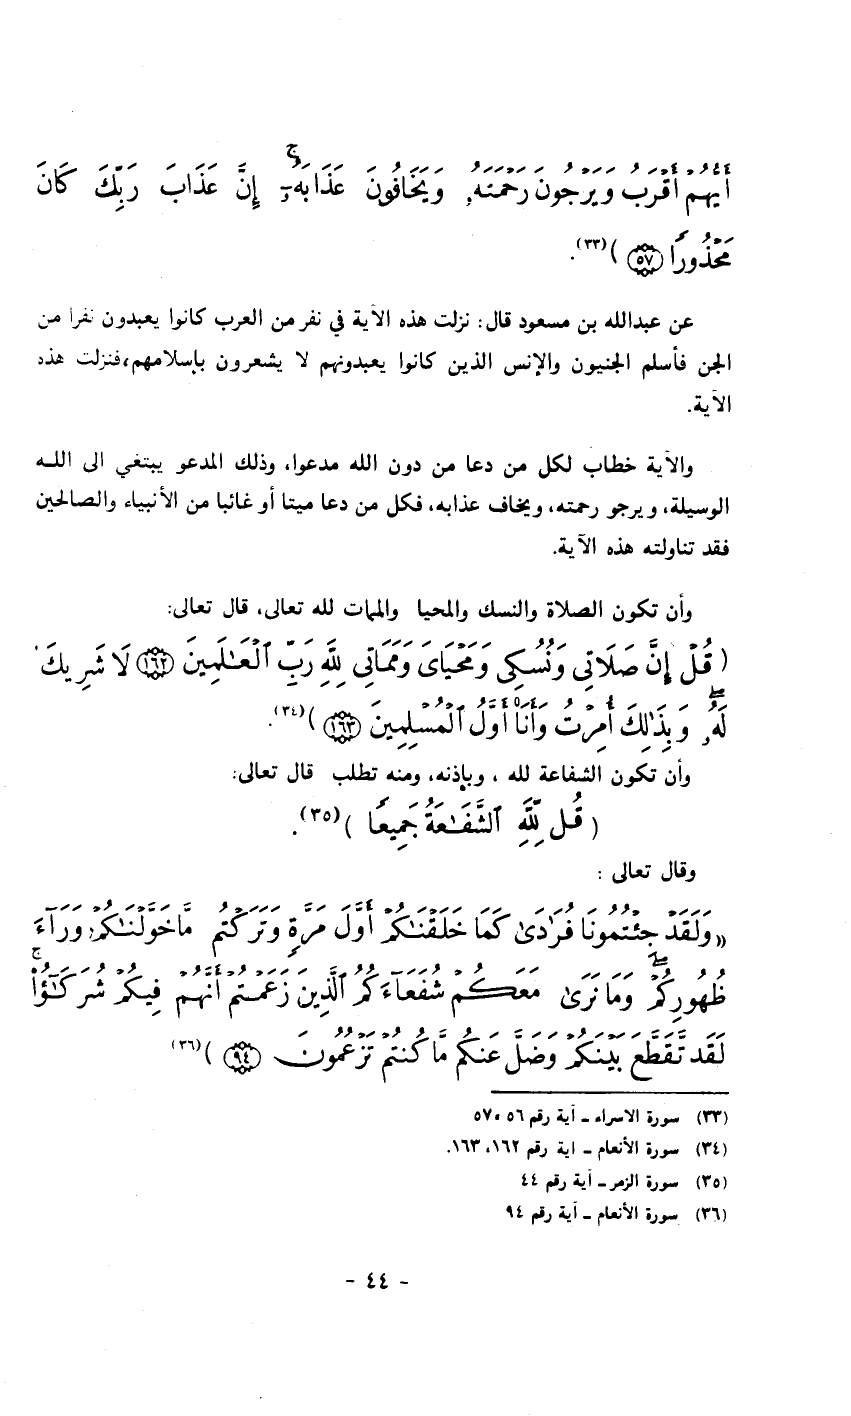 أَيُّهُمْ أَقْرَبُ وَيَرْجُونَ رَحْمَتَهُۥ وَيَخَافُونَ عَذَابَهُۥٓ ۚ إِنَّ عَذَابَ رَبِّكَ كَانَ
مَحْذُورًا ﴿٥٧﴾ )(٣٣).
عن عبدالله بن مسعود قال: نزلت هذه الآية في نفر من العرب كانوا يعبدون نفرا من
الجن فأسلم الجنيون والإنس الذين كانوا يعبدونهم لا يشعرون بإسلامهم، فنزلت هذه
الآية.
والآية خطاب لكل من دعا من دون الله مدعوا، وذلك المدعو يبتغي الى اللـه
الوسيلة، ويرجو رحمته، ويخاف عذابه، فكل من دعا ميتا أو غائبا من الأنبياء والصالحين
فقد تناولته هذه الآية.
وأن تكون الصلاة والنسك والمحيا والممات لله تعالى، قال تعالى:
( قُلْ إِنَّ صَلَاتِي وَنُسُكِي وَمَحْيَايَ وَمَمَاتِي لِلَّهِ رَبِّ ٱلْعَـٰلَمِينَ ﴿١٦٢﴾ لَا شَرِيكَ
لَهُۥ ۖ وَبِذَٰلِكَ أُمِرْتُ وَأَنَا۠ أَوَّلُ ٱلْمُسْلِمِينَ ﴿١٦٣﴾ )(٣٤).
وأن تكون الشفاعة لله ، وبإذنه، ومنه تطلب قال تعالى:
( قُل لِّلَّهِ ٱلشَّفَـٰعَةُ جَمِيعًا )(٣٥).
وقال تعالى :
« وَلَقَدْ جِئْتُمُونَا فُرَٰدَىٰ كَمَا خَلَقْنَـٰكُمْ أَوَّلَ مَرَّةٍ وَتَرَكْتُم مَّا خَوَّلْنَـٰكُمْ وَرَآءَ
ظُهُورِكُمْ ۖ وَمَا نَرَىٰ مَعَكُمْ شُفَعَآءَكُمُ ٱلَّذِينَ زَعَمْتُمْ أَنَّهُمْ فِيكُمْ شُرَكَـٰٓؤُا۟ ۚ
لَقَد تَّقَطَّعَ بَيْنَكُمْ وَضَلَّ عَنكُم مَّا كُنتُمْ تَزْعُمُونَ ﴿٩٤﴾ )(٣٦)
(٣٣) سورة الاسراء ـ آية رقم ٥٦ ، ٥٧
(٣٤) سورة الأنعام ـ اية رقم ١٦٢، ١٦٣.
(٣٥) سورة الزمر ـ آية رقم ٤٤
(٣٦) سورة الأنعام ـ آية رقم ٩٤
- ٤٤ -